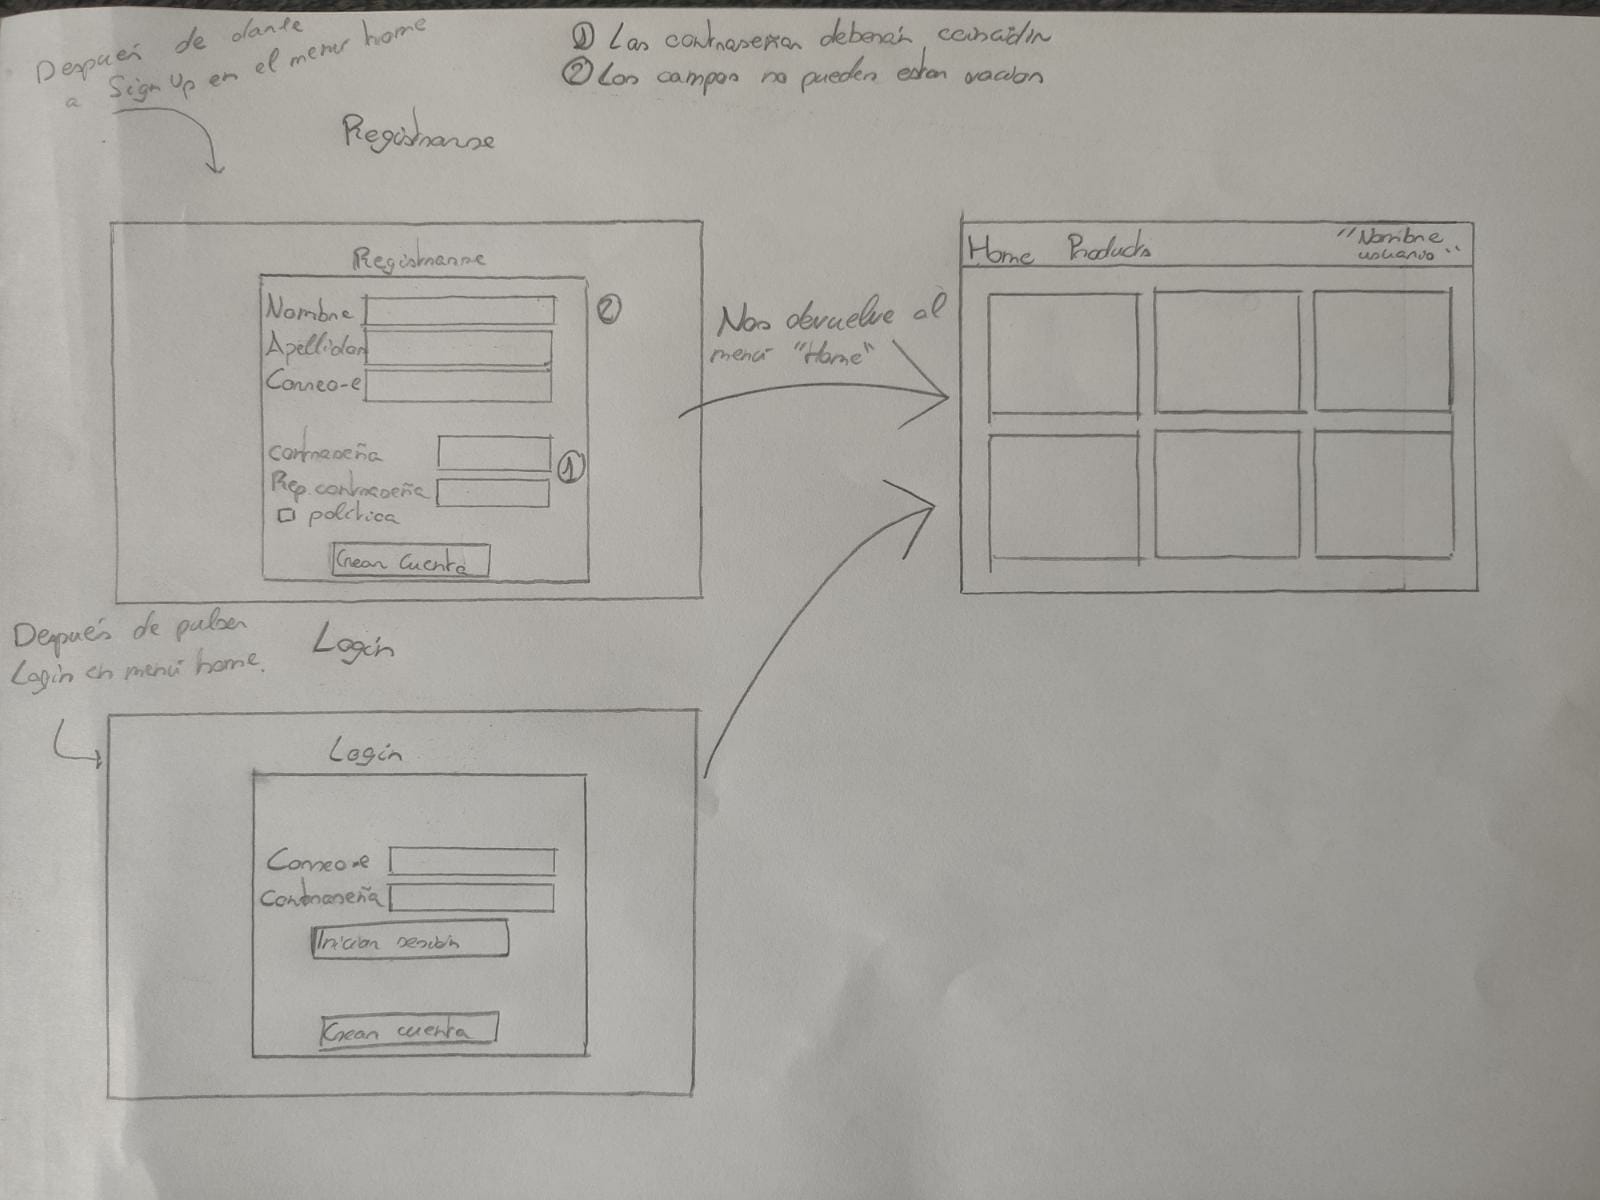 Después de darle
a Sign Up en el menu home
① Las contraseñas deberán coincidir
② Los campos no pueden estar vacios
Registrarse
Registrarse
Nombre
②
Apellidos
Correo-e
contraseña
①
Rep. contraseña
politica
Crear Cuenta
Nos devuelve al
menú "Home"
Home Products "Nombre
usuario"
Después de pulsar
Login en menú home.
Login
Login
Correo-e
Contraseña
Iniciar sesión
Crear cuenta